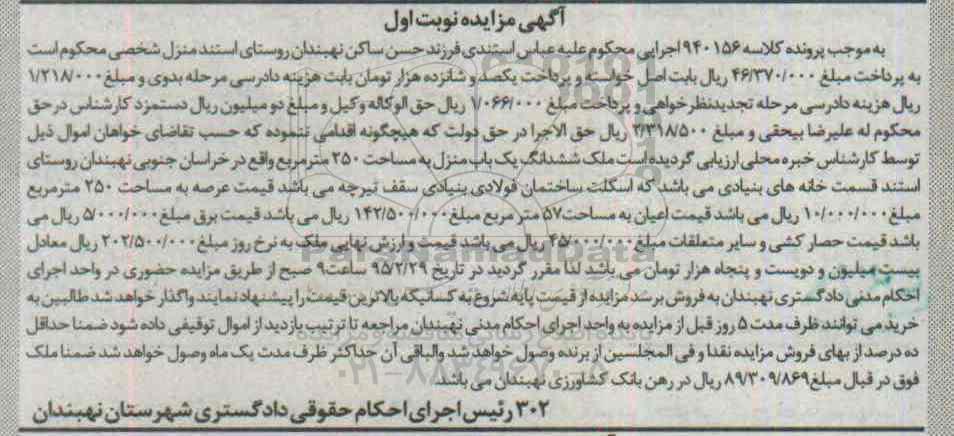 آگهی مزایده نوبت اول
به موجب پرونده کلاسه ۹۴۰۱۵۶ اجرایی محکوم علیه عباس استندی فرزند حسن ساکن نهبندان روستای استند منزل شخصی محکوم است
به پرداخت مبلغ ۴۶/۳۷۰/۰۰۰ ریال بابت اصل خواسته و پرداخت یکصد و شانزده هزار تومان بابت هزینه دادرسی مرحله بدوی و مبلغ ۱/۲۱۸/۰۰۰
ریال هزینه دادرسی مرحله تجدیدنظرخواهی و پرداخت مبلغ ۱/۰۶۶/۰۰۰ ریال حق الوکاله وکیل و مبلغ دو میلیون ریال دستمزد کارشناس در حق
محکوم له علیرضا بیحقی و مبلغ ۲/۳۱۸/۵۰۰ ریال حق الاجرا در حق دولت که هیچگونه اقدامی ننموده که حسب تقاضای خواهان اموال ذیل
توسط کارشناس خبره محلی ارزیابی گردیده است ملک ششدانگ یک باب منزل به مساحت ۲۵۰ مترمربع واقع در خراسان جنوبی نهبندان روستای
استند قسمت خانه های بنیادی می باشد که اسکلت ساختمان فولادی بنیادی سقف تیرچه می باشد قیمت عرصه به مساحت ۲۵۰ مترمربع
مبلغ ۱۰/۰۰۰/۰۰۰ ریال می باشد قیمت اعیان به مساحت ۵۷ متر مربع مبلغ ۱۴۲/۵۰۰/۰۰۰ ریال می باشد قیمت برق مبلغ ۵/۰۰۰/۰۰۰ ریال می
باشد قیمت حصار کشی و سایر متعلقات مبلغ ۴۵/۰۰۰/۰۰۰ ریال می باشد قیمت و ارزش نهایی ملک به نرخ روز مبلغ ۲۰۲/۵۰۰/۰۰۰ ریال معادل
بیست میلیون و دویست و پنجاه هزار تومان می باشد لذا مقرر گردید در تاریخ ۹۵/۲/۲۹ ساعت ۹ صبح از طریق مزایده حضوری در واحد اجرای
احکام مدنی دادگستری نهبندان به فروش برسد مزایده از قیمت پایه شروع به کسانیکه بالاترین قیمت را پیشنهاد نمایند واگذار خواهد شد طالبین به
خرید می توانند ظرف مدت ۵ روز قبل از مزایده به واحد اجرای احکام مدنی نهبندان مراجعه تا ترتیب بازدید از اموال توقیفی داده شود ضمنا حداقل
ده درصد از بهای فروش مزایده نقدا و فی المجلسین از برنده وصول خواهد شد والباقی آن حداکثر ظرف مدت یک ماه وصول خواهد شد ضمنا ملک
فوق در قبال مبلغ ۸۹/۳۰۹/۸۶۹ ریال در رهن بانک کشاورزی نهبندان می باشد.
۳۰۲ رئیس اجرای احکام حقوقی دادگستری شهرستان نهبندان
ParsNamadData